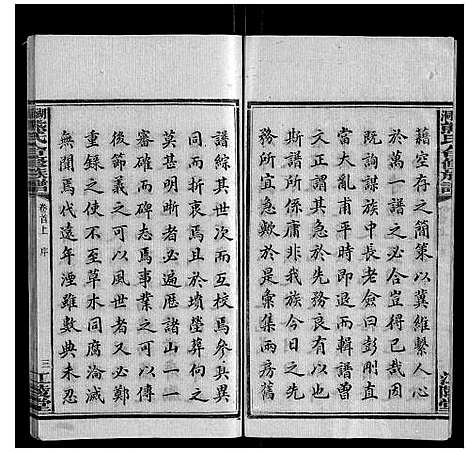 藉空存之簡策以冀維繫人心
於萬一譜之必合豈得已哉因
既詢謀族中長老僉曰彭剛直
當大亂甫平時即以輯譜曾
文正謂其知所先務良有以也
斯譜之修庸非我族今日之先
務所宜急於是彙集兩房舊
譜綜其世次而互校焉參異
同而折衷焉且於墳塋葬向之
莫甚明晰者必遍歷諸山一一
審確而碑志爲事業之可以傳
後節義之可以風世者又必鄭
重錄之使不至草水同腐淪滅
無聞焉代遠年湮雖數典未忍
卷首上 序
三
江陵堂